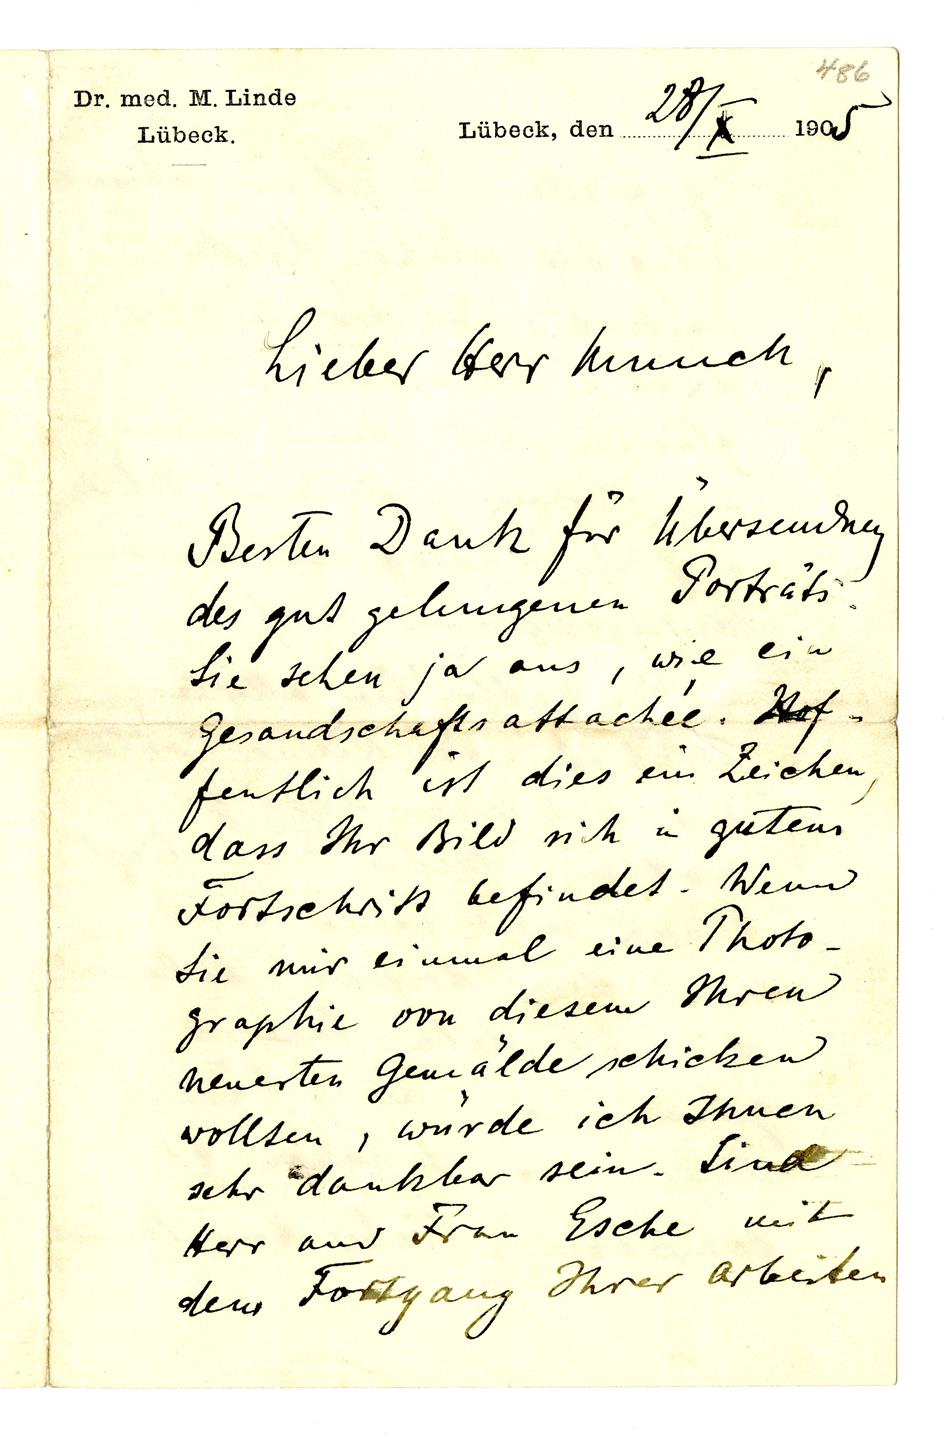 486
Dr. med. M. Linde
Lübeck.
Lübeck, den 28/X 1905
Lieber Herr Munch,
Besten Dank für Übersendung
des gut gelungenen Porträts.
Sie sehen ja aus, wie ein
Gesandschaftsattachée. Hof-
fentlich ist dies ein Zeichen,
dass Ihr Bild sich in gutem
Fortschritt befindet. Wenn
Sie mir einmal eine Photo-
graphie von diesem Ihren
neuesten Gemälde schicken
wollten, würde ich Ihnen
sehr dankbar sein. Sind
Herr und Frau Esche mit
dem Fortgang Ihrer Arbeiten